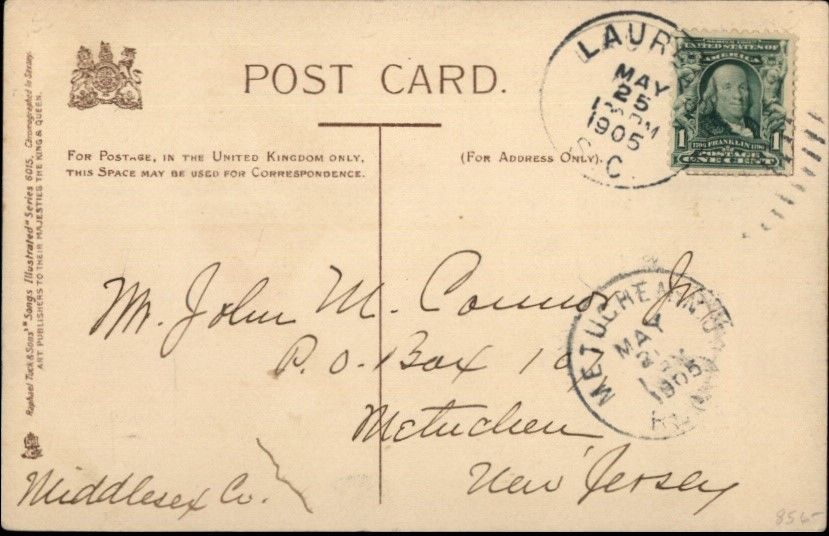 POST CARD.
FOR POSTAGE, IN THE UNITED KINGDOM ONLY,
THIS SPACE MAY BE USED FOR CORRESPONDENCE.
(FOR ADDRESS ONLY).
Raphael Tuck & Sons' "Songs Illustrated" Series 6015. Chromographed in Saxony.
ART PUBLISHERS TO THEIR MAJESTIES THE KING & QUEEN.
LAUR
MAY
25
1905
S.C.
UNITED STATES OF
AMERICA
1
1
FRANKLIN
POSTAGE
ONE CENT
METUCHEN N.J.
MAY
1905
Mr. John M. Connor Jr.
P. O. Box 10
Metuchen,
New Jersey
Middlesex Co.